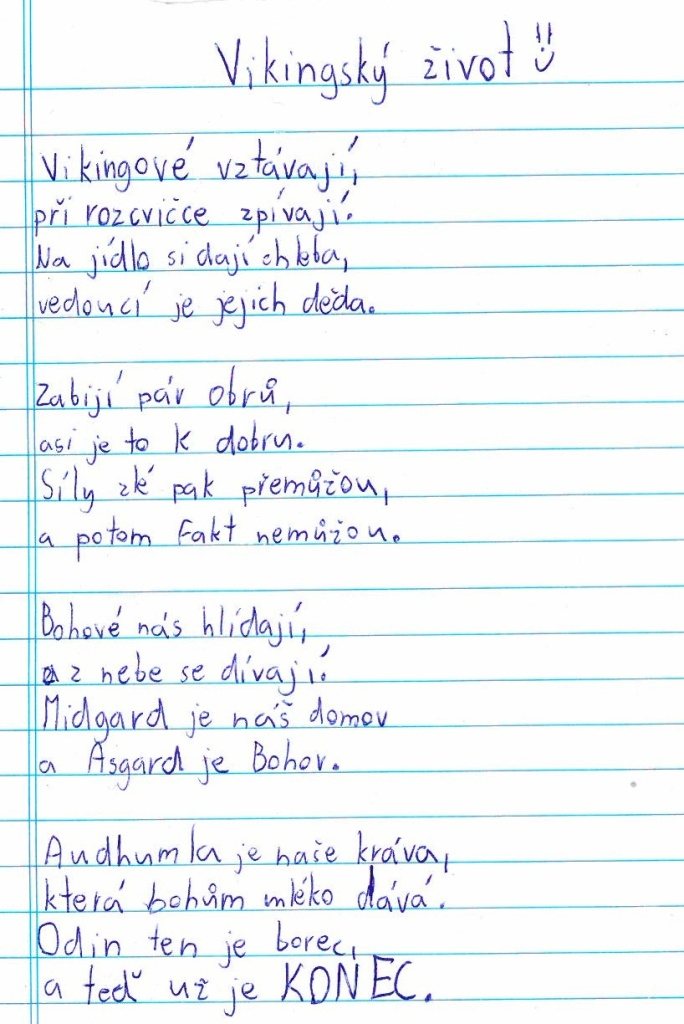 Vikingský život
Vikingové vztávají,
při rozcvičce zpívají.
Na jídlo si dají chleba,
vedoucí je jejich děda.
Zabijí pár obrů,
asi je to k dobru.
Síly zlé pak přemůžou,
a potom fakt nemůžou.
Bohové nás hlídají,
a z nebe se dívají.
Midgard je náš domov
a Asgard je Bohov.
Audhumla je naše kráva,
která bohům mléko dává.
Odin ten je borec,
a teď už je KONEC.